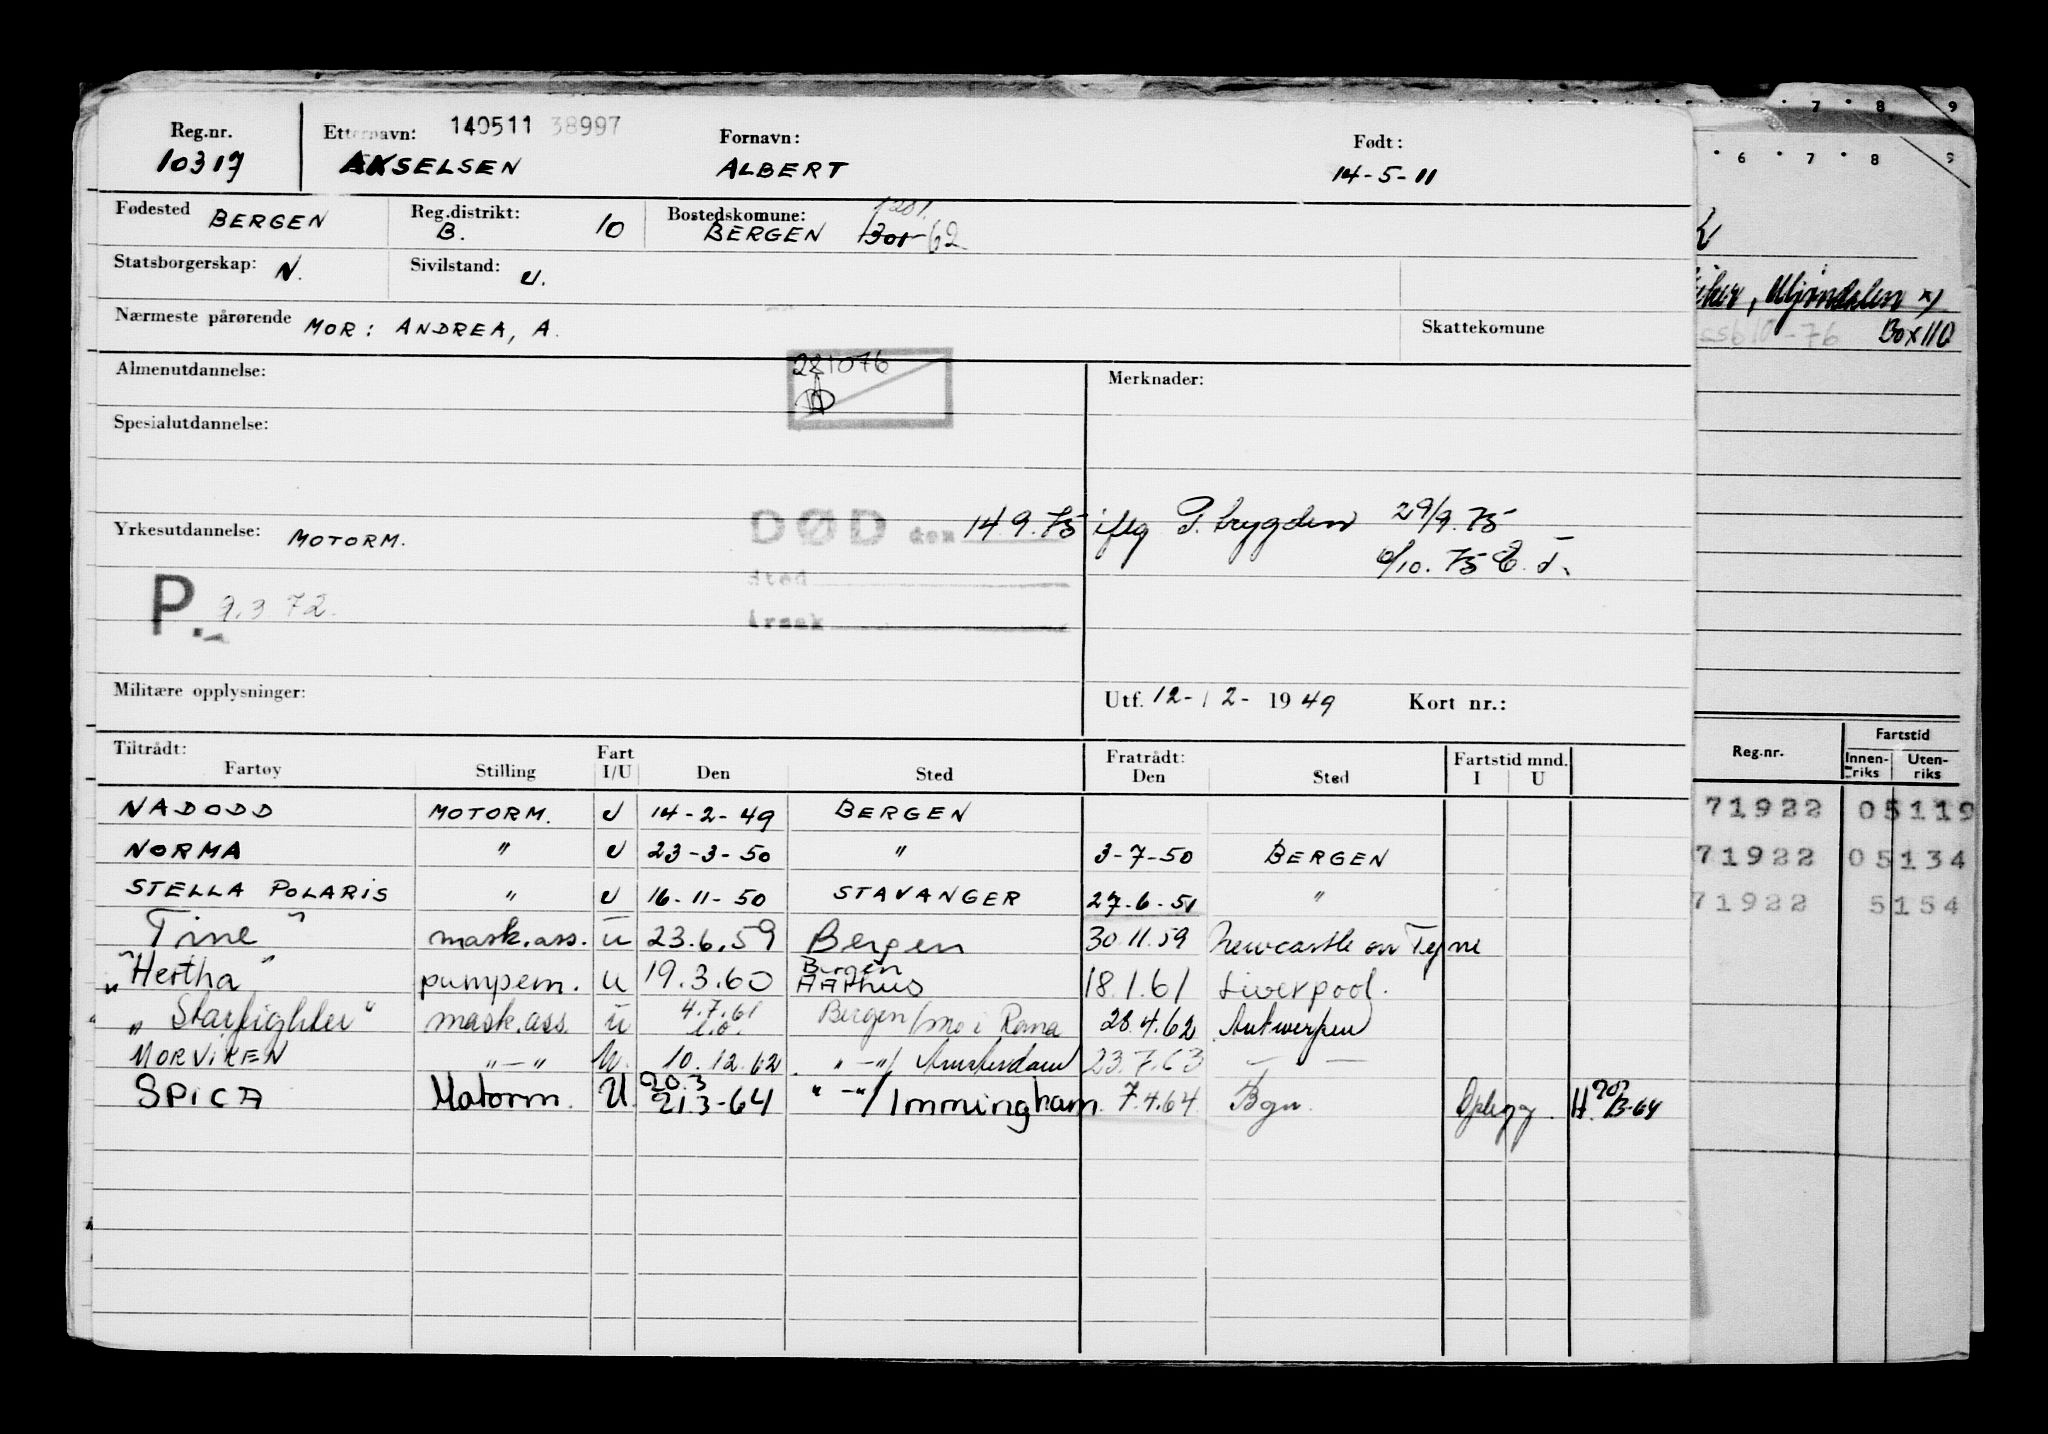 Reg.nr. Etternavn: 140511 38997 Fornavn: Født:
10317 AKSELSEN ALBERT 14-5-11
Fødested BERGEN Reg.distrikt: B. 10 Bostedskomune: BERGEN 1301 62
Statsborgerskap: N. Sivilstand: U.
Nærmeste pårørende MOR: ANDREA, A. Skattekomune
Almenutdannelse: 221076 Merknader:
Spesialutdannelse:
Yrkesutdannelse: MOTORM. DØD den 14.9.75 iflg P. trygden 29/9.75
Sted 6/10.75 E.T.
P. 9.3 72. Årsak
Militære opplysninger: Utf. 12-12-1949 Kort nr.:
Tiltrådt: Fart Fratrådt: Fartstid mnd.
Fartøy Stilling I/U Den Sted Den Sted I U
NADODD MOTORM. U 14-2-49 BERGEN
NORMA " U 23-3-50 " 3-7-50 BERGEN
STELLA POLARIS " U 16-11-50 STAVANGER 27-6-51 "
Tine" mask.ass. U 23.6.59 Bergen 30.11.59 Newcastle on Tyne
"Hertha" pumpem. U 19.3.60 Bergen Aarhus 18.1.61 Liverpool.
"Starfighter" mask.ass. U 4.7.61 l.o. Bergen/Mo i Rana 28.4.62 Antwerpen
MORVIKEN "—" U. 10.12.62 "—"/Amsterdam 23.7.63 — —
SPICA Motorm. U. 20.3 21.3-64 "—"/Immingham. 7.4.64 Bgn. Opplegg. H.
7 8 9
6 7 8 9
Mjøndalen x)
Box 110
Reg-nr. Fartstid
Innen-riks Uten-riks
71922 05119
71922 05134
71922 5154